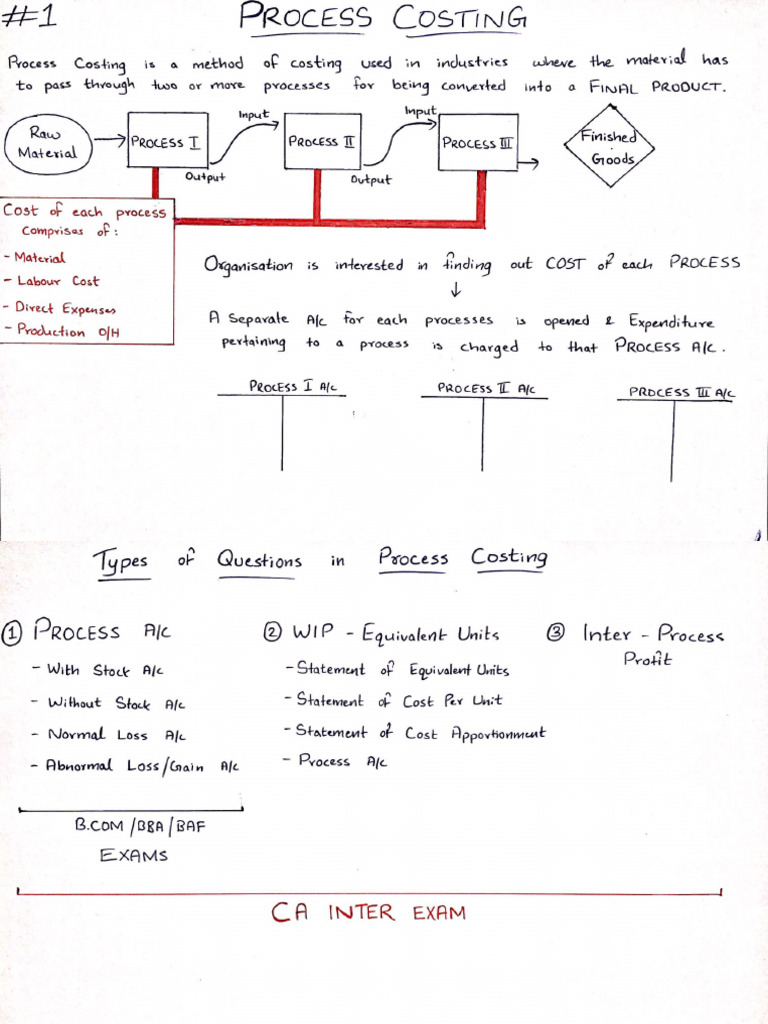 #1 PROCESS COSTING
Process Costing is a method of costing used in industries where the material has
to pass through two or more processes for being converted into a FINAL PRODUCT.
Raw
Material
PROCESS I
Input
Output
PROCESS II
Input
Output
PROCESS III
Finished
Goods
Cost of each process
comprises of:
- Material
- Labour Cost
- Direct Expenses
- Production O/H
Organisation is interested in finding out COST of each PROCESS
↓
A Separate A/c for each processes is opened & Expenditure
pertaining to a process is charged to that PROCESS A/C.
PROCESS I A/C
PROCESS II A/C
PROCESS III A/C
Types of Questions in Process Costing
① PROCESS A/C
- With Stock A/c
- Without Stock A/c
- Normal Loss A/c
- Abnormal Loss/Gain A/c
B.COM/BBA/BAF
EXAMS
② WIP - Equivalent Units
- Statement of Equivalent Units
- Statement of Cost Per Unit
- Statement of Cost Apportionment
- Process A/c
③ Inter - Process
Profit
CA INTER EXAM